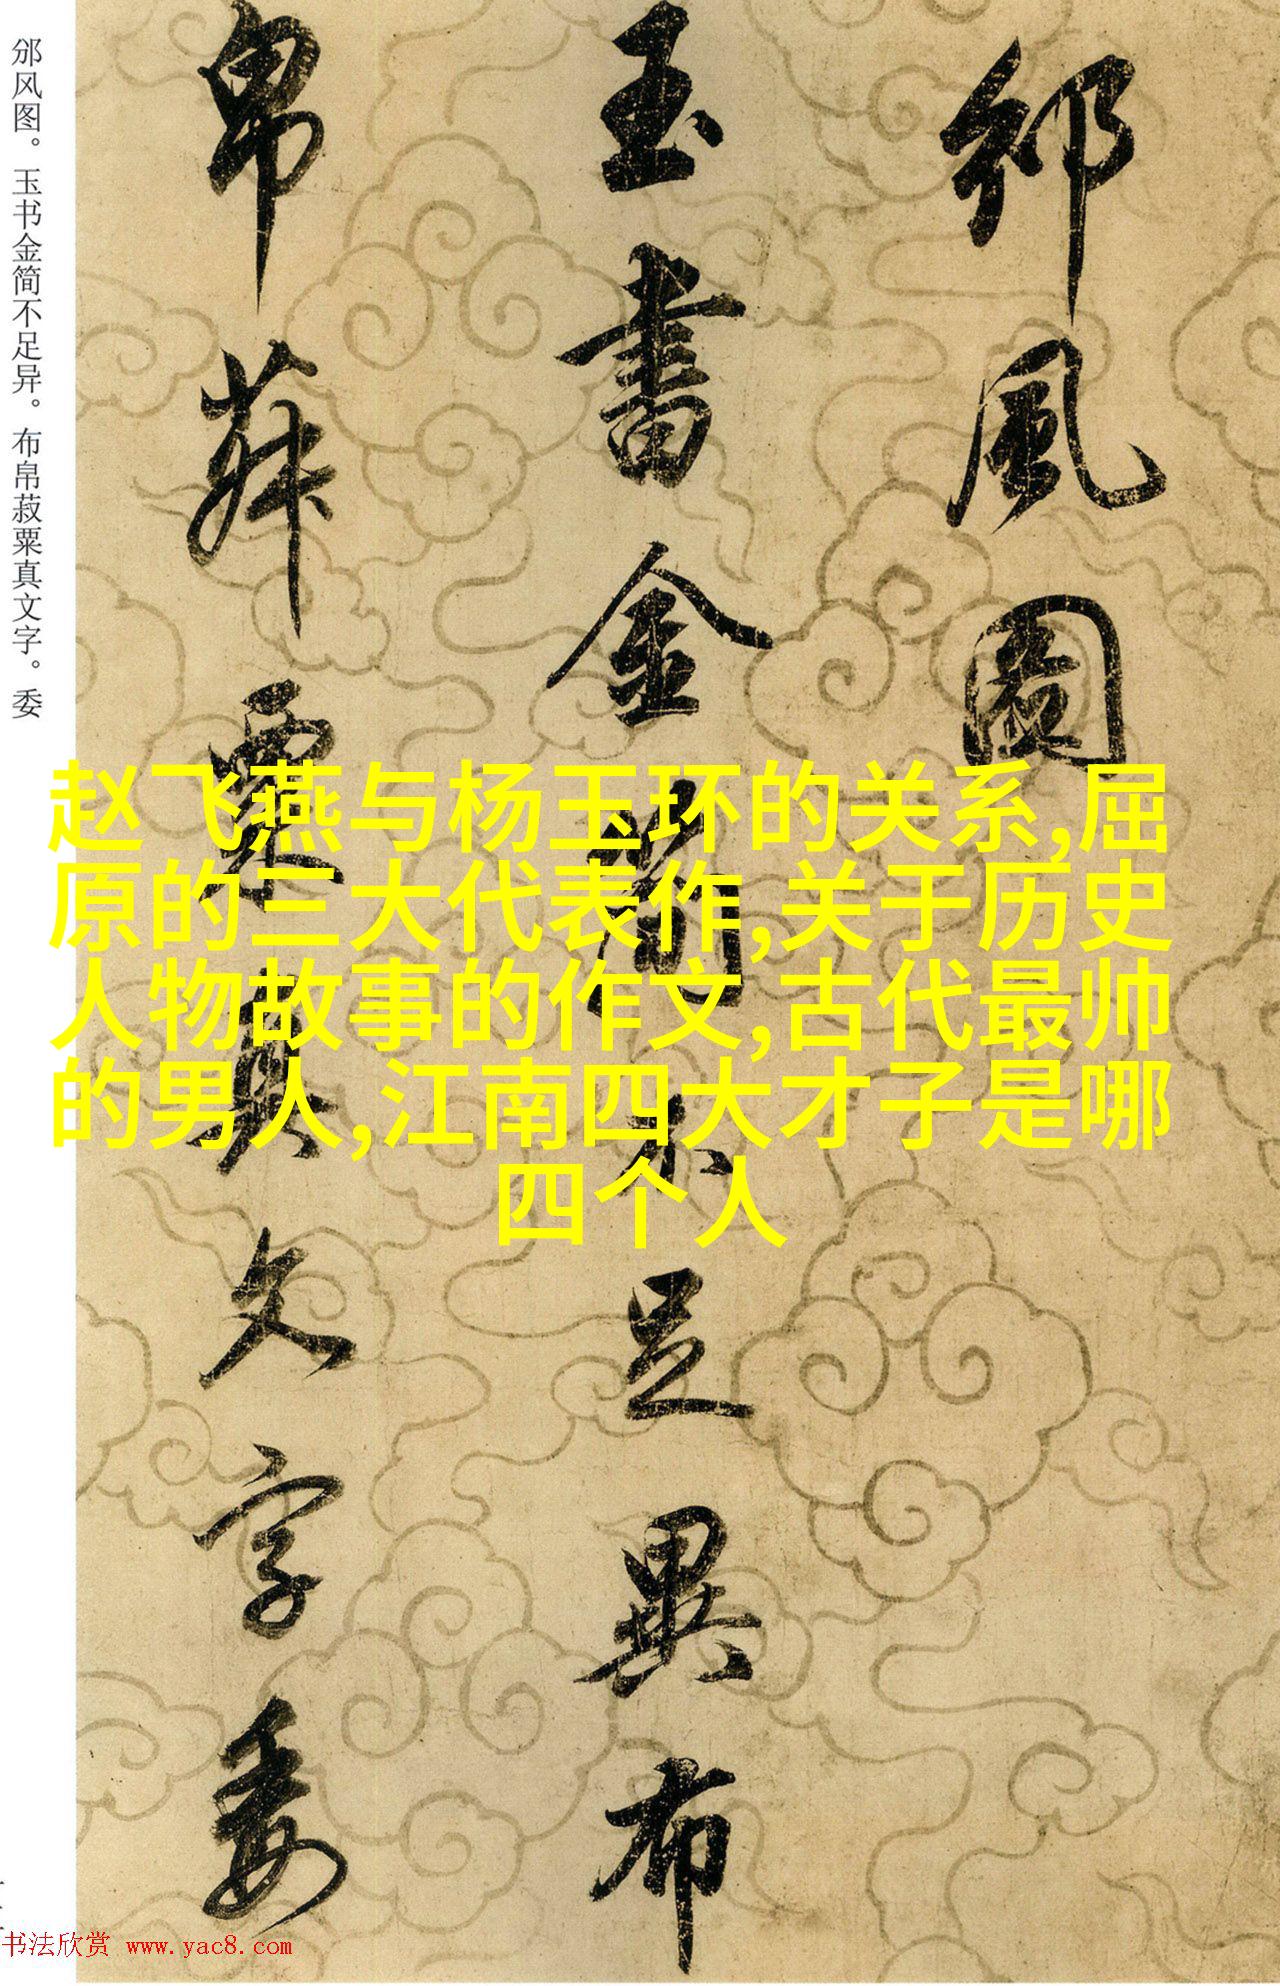 邠風圖
玉書金簡不足異布
帛菽粟真文字委
邠风图。玉书金简不足异。布帛菽粟真文字。委
赵飞燕与杨玉环的关系,屈
原的三大代表作,关于历史
人物故事的作文,古代最帅
的男人,江南四大才子是哪
四个人
书法欣赏 www.yac8.com